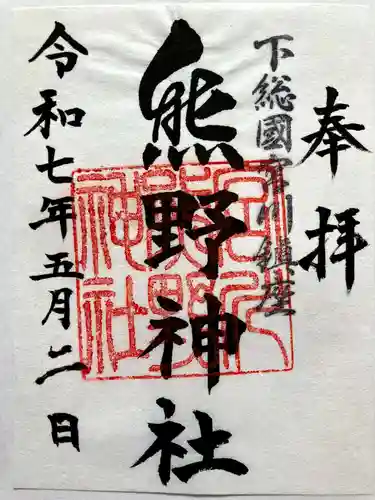 奉拝
下総國市川鎮座
熊野神社
令和七年五月二日